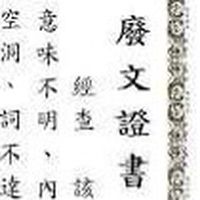 廢文證書
經查　該
意味不明、內
空洞、詞不達